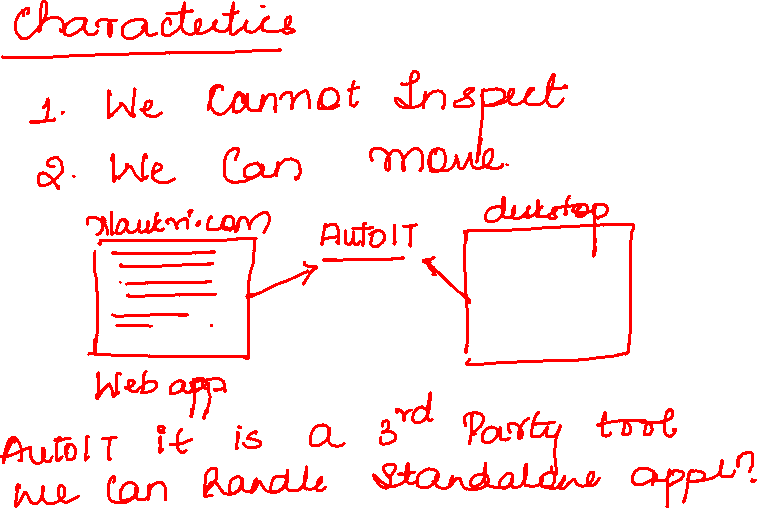 Charactetics
1. We Cannot Inspect
2. We Can move.
Naukri.com
AutoIT
deckstop
Web app
AutoIT it is a 3rd Party tool
we Can handle Standalone appl?